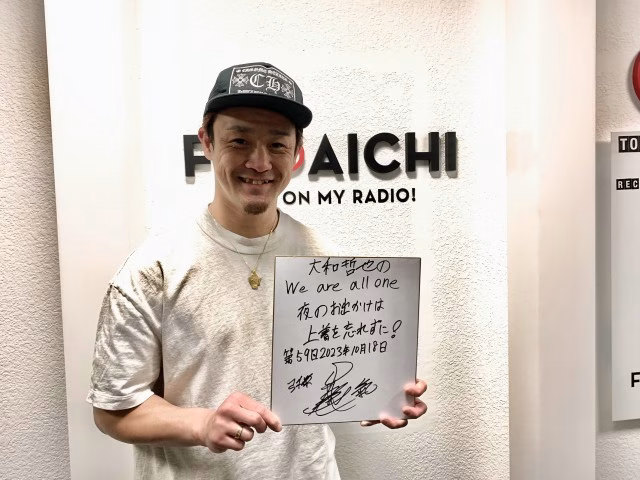 CH
F AICHI
ON MY RADIO!
大和哲也の
We are all one
夜のお出かけは
上着を忘れずに!
第59回2023年10月18日
TO
REC
F